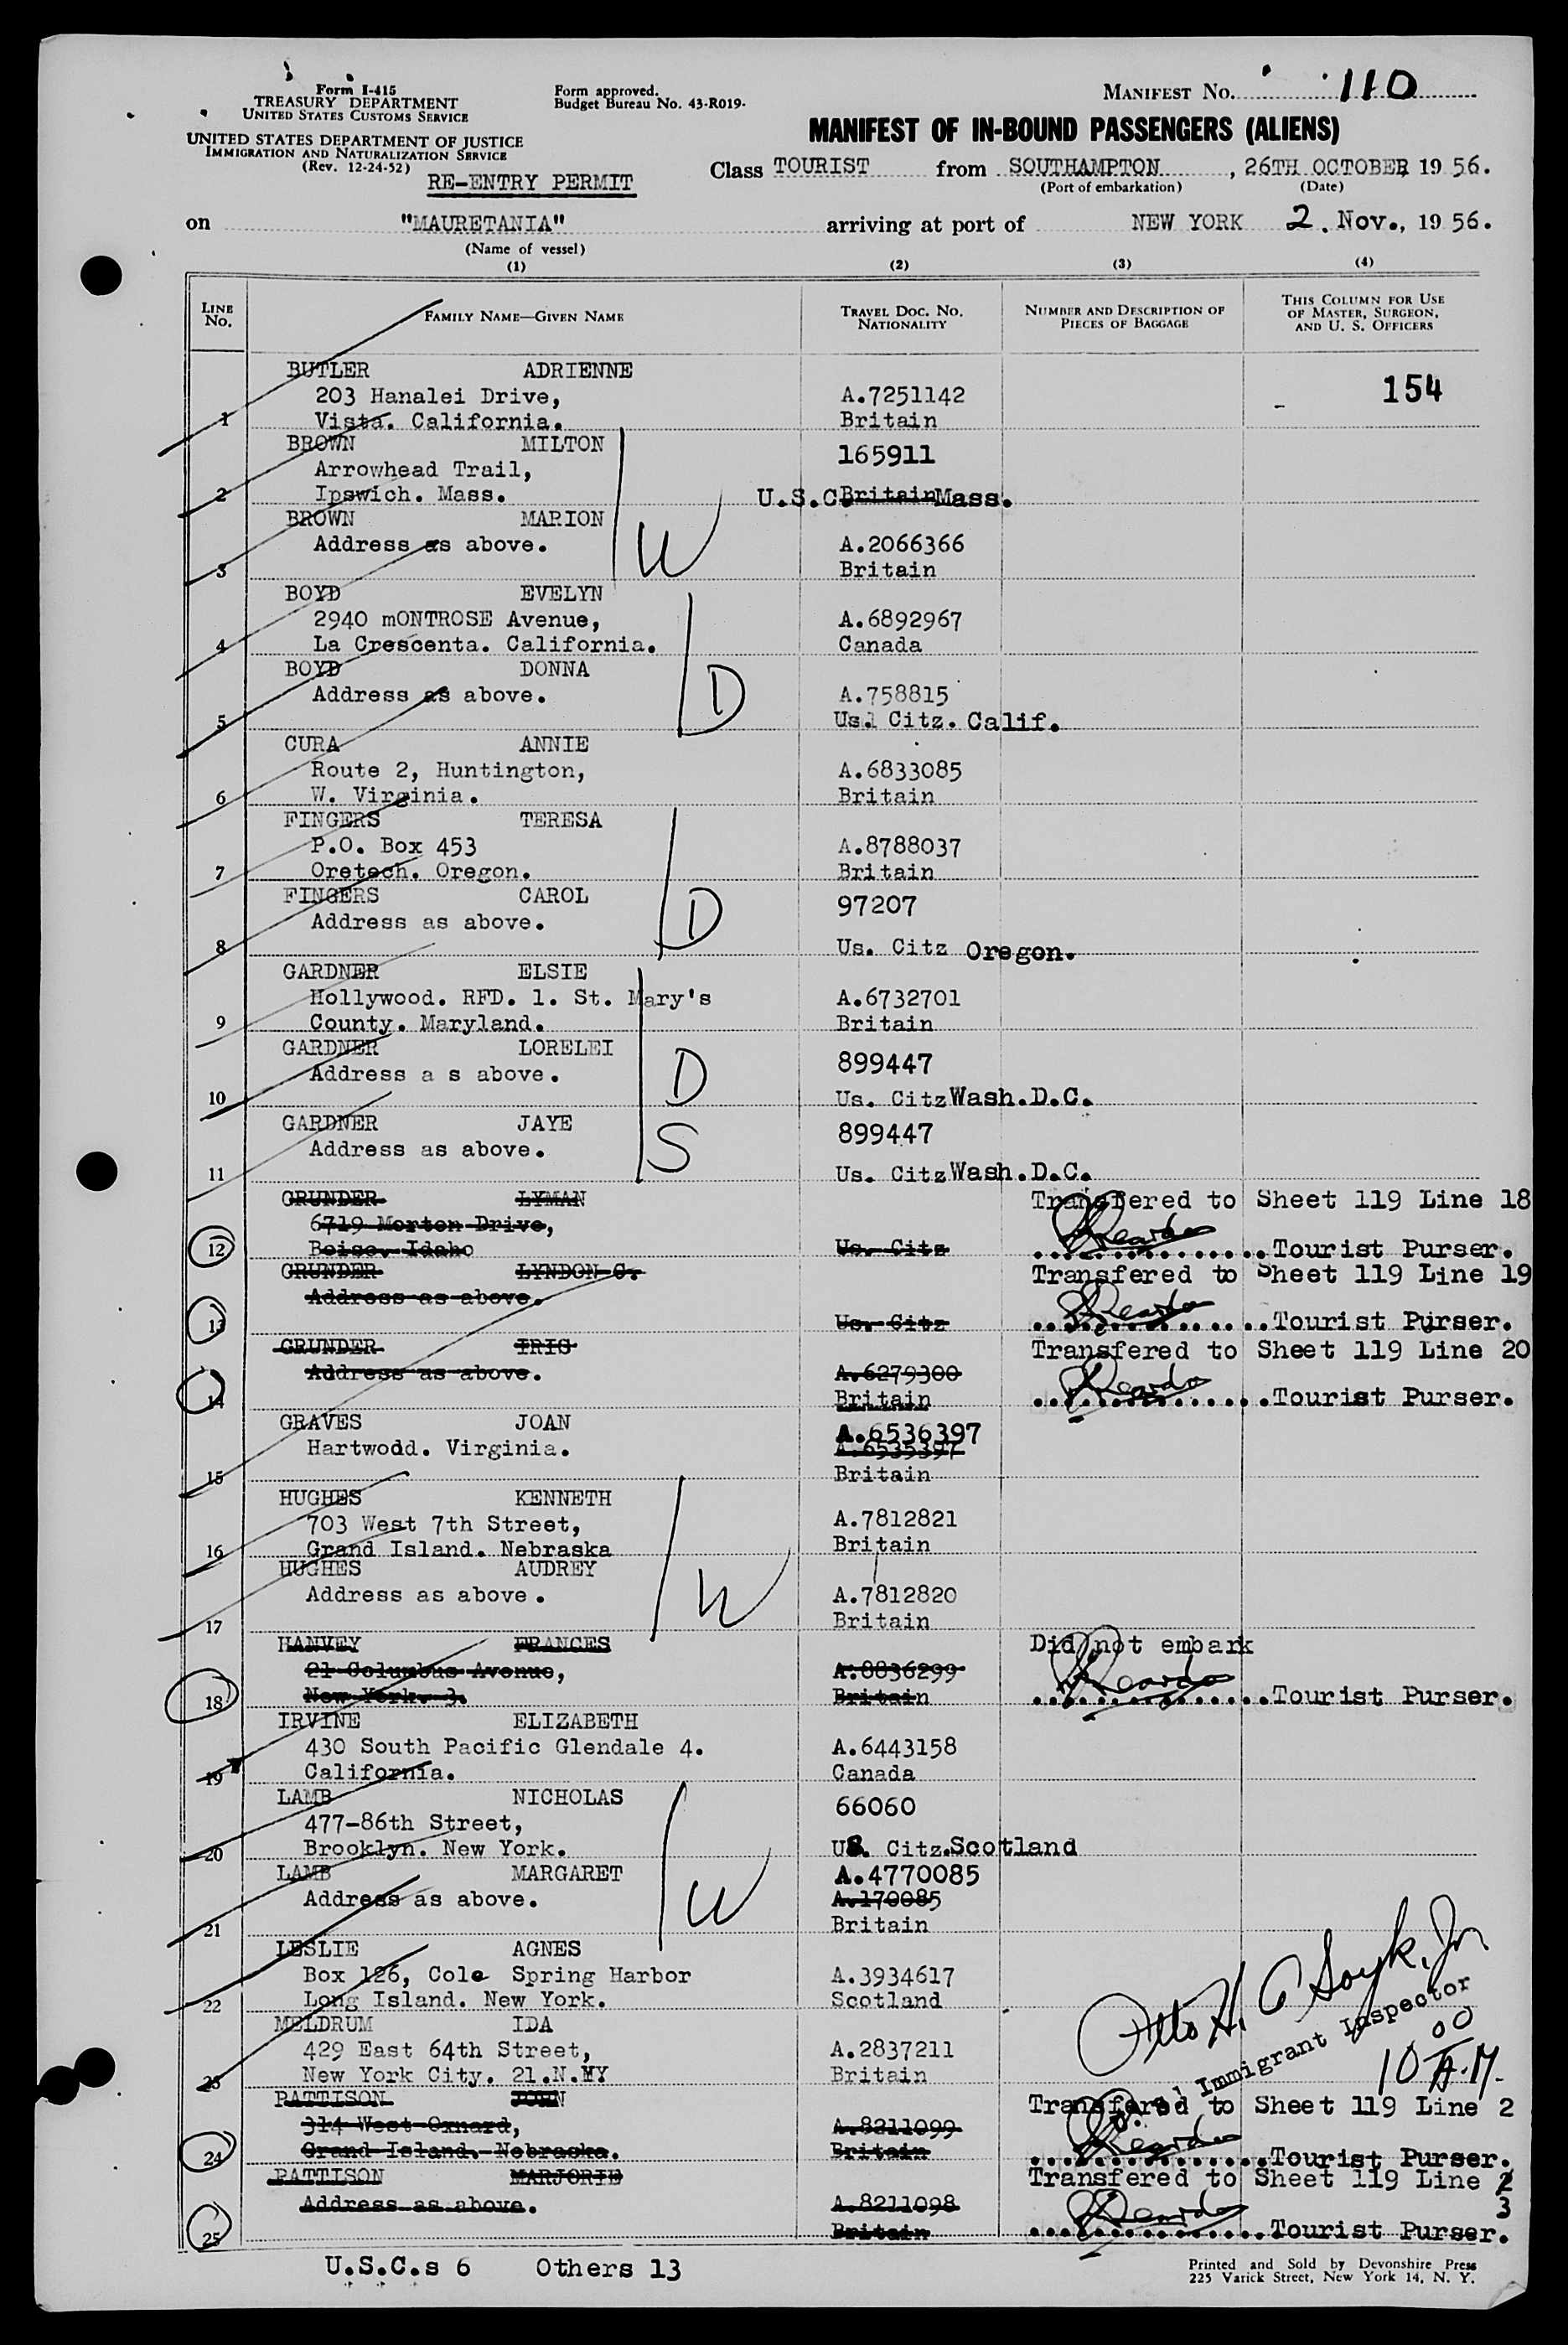 Form I-415
TREASURY DEPARTMENT
UNITED STATES CUSTOMS SERVICE
UNITED STATES DEPARTMENT OF JUSTICE
IMMIGRATION AND NATURALIZATION SERVICE
(Rev. 12-24-52)
RE-ENTRY PERMIT
Form approved.
Budget Bureau No. 43-R019.
MANIFEST NO. 110
MANIFEST OF IN-BOUND PASSENGERS (ALIENS)
Class TOURIST from SOUTHAMPTON, 26TH OCTOBER 1956.
(Port of embarkation) (Date)
on "MAURETANIA" arriving at port of NEW YORK 2. Nov., 1956.
(Name of vessel)
(1) (2) (3) (4)
LINE NO. FAMILY NAME—GIVEN NAME TRAVEL DOC. NO. NATIONALITY NUMBER AND DESCRIPTION OF PIECES OF BAGGAGE THIS COLUMN FOR USE OF MASTER, SURGEON, AND U. S. OFFICERS
BUTLER ADRIENNE
203 Hanalei Drive, A.7251142 154
1 Vista. California. Britain
BROWN MILTON 165911
Arrowhead Trail,
2 Ipswich. Mass. U.S.C. Britain Mass.
BROWN MARION
Address as above. A.2066366
3 Britain
W
BOYD EVELYN
2940 mONTROSE Avenue, A.6892967
4 La Crescenta. California. Canada
BOYD DONNA
Address as above. D A.758815
5 Us. Citz. Calif.
CURA ANNIE
Route 2, Huntington, A.6833085
6 W. Virginia. Britain
FINGERS TERESA
P.O. Box 453 A.8788037
7 Oretech. Oregon. Britain
FINGERS CAROL 97207
Address as above. D
8 Us. Citz Oregon.
GARDNER ELSIE
Hollywood. RFD. 1. St. Mary's A.6732701
9 County. Maryland. Britain
GARDNER LORELEI 899447
Address a s above. D
10 Us. Citz Wash.D.C.
GARDNER JAYE 899447
Address as above. S
11 Us. Citz Wash.D.C.
GRUNDER LYMAN Transfered to Sheet 119 Line 18
6719 Morton Drive,
12 Boise. Idaho Us. Citz Tourist Purser.
GRUNDER LYNDON C. Transfered to Sheet 119 Line 19
Address as above.
13 Us. Citz Tourist Purser.
GRUNDER IRIS Transfered to Sheet 119 Line 20
Address as above. A.6279300
14 Britain Tourist Purser.
GRAVES JOAN A.6536397
Hartwodd. Virginia. A.6535397
15 Britain
HUGHES KENNETH
703 West 7th Street, A.7812821
16 Grand Island. Nebraska Britain
HUGHES AUDREY
Address as above. W A.7812820
17 Britain
HANVEY FRANCES Did not embark
21 Columbus Avenue, A.8836299
18 New York. 3. Britain Tourist Purser.
IRVINE ELIZABETH
430 South Pacific Glendale 4. A.6443158
19 California. Canada
LAMB NICHOLAS 66060
477-86th Street,
20 Brooklyn. New York. US. Citz. Scotland
LAMB MARGARET A.4770085
Address as above. W A.170085
21 Britain
LESLIE AGNES
Box 126, Cole Spring Harbor A.3934617
22 Long Island. New York. Scotland
MELDRUM IDA
429 East 64th Street, A.2837211
23 New York City. 21.N.YY Britain
Otto H. Soyk, Jr
Immigrant Inspector
10 00 A.M.
PATTISON JOHN Transfered to Sheet 119 Line 2
314 West Oxnard, A.8211099
24 Grand Island. Nebraska. Britain Tourist Purser.
PATTISON MARJORIE Transfered to Sheet 119 Line 2
Address as above. A.8211098 3
25 Britain Tourist Purser.
U.S.C.s 6 Others 13
Printed and Sold by Devonshire Press
225 Varick Street, New York 14, N. Y.